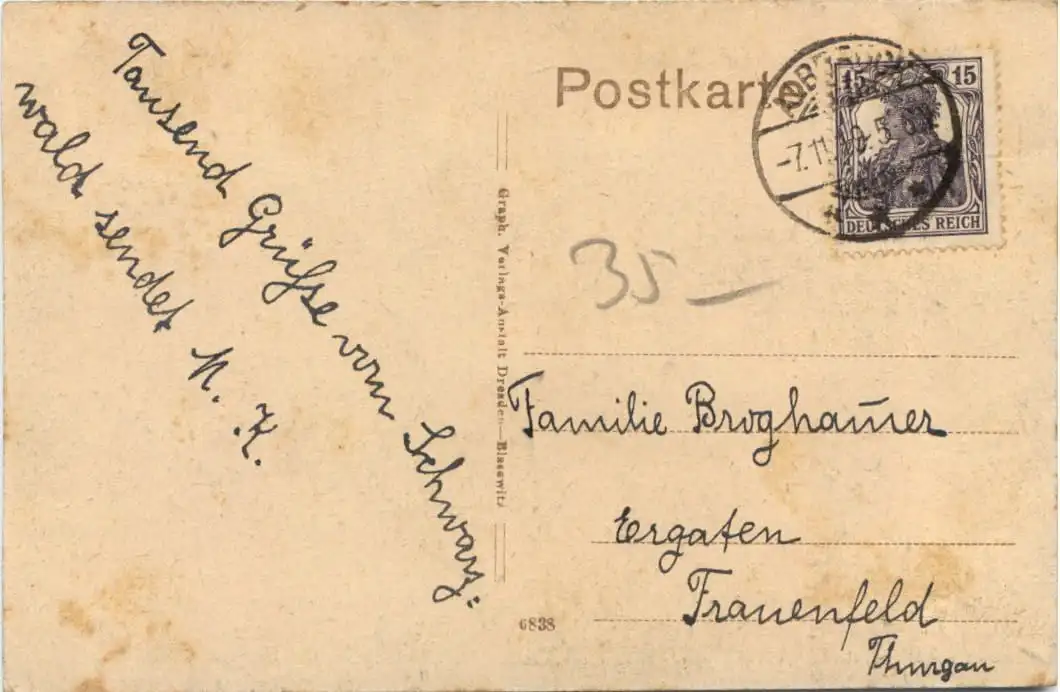 Tausend Grüße vom Schwarz:
wald sendet
N. K.
Postkarte
15 15
DEUTSCHES REICH
-7.11.
35 —
Graph. Verlags-Anstalt Dresden—Blasewitz
Familie Brogham̄er
Ergaten
Frauenfeld
Thurgau
6838